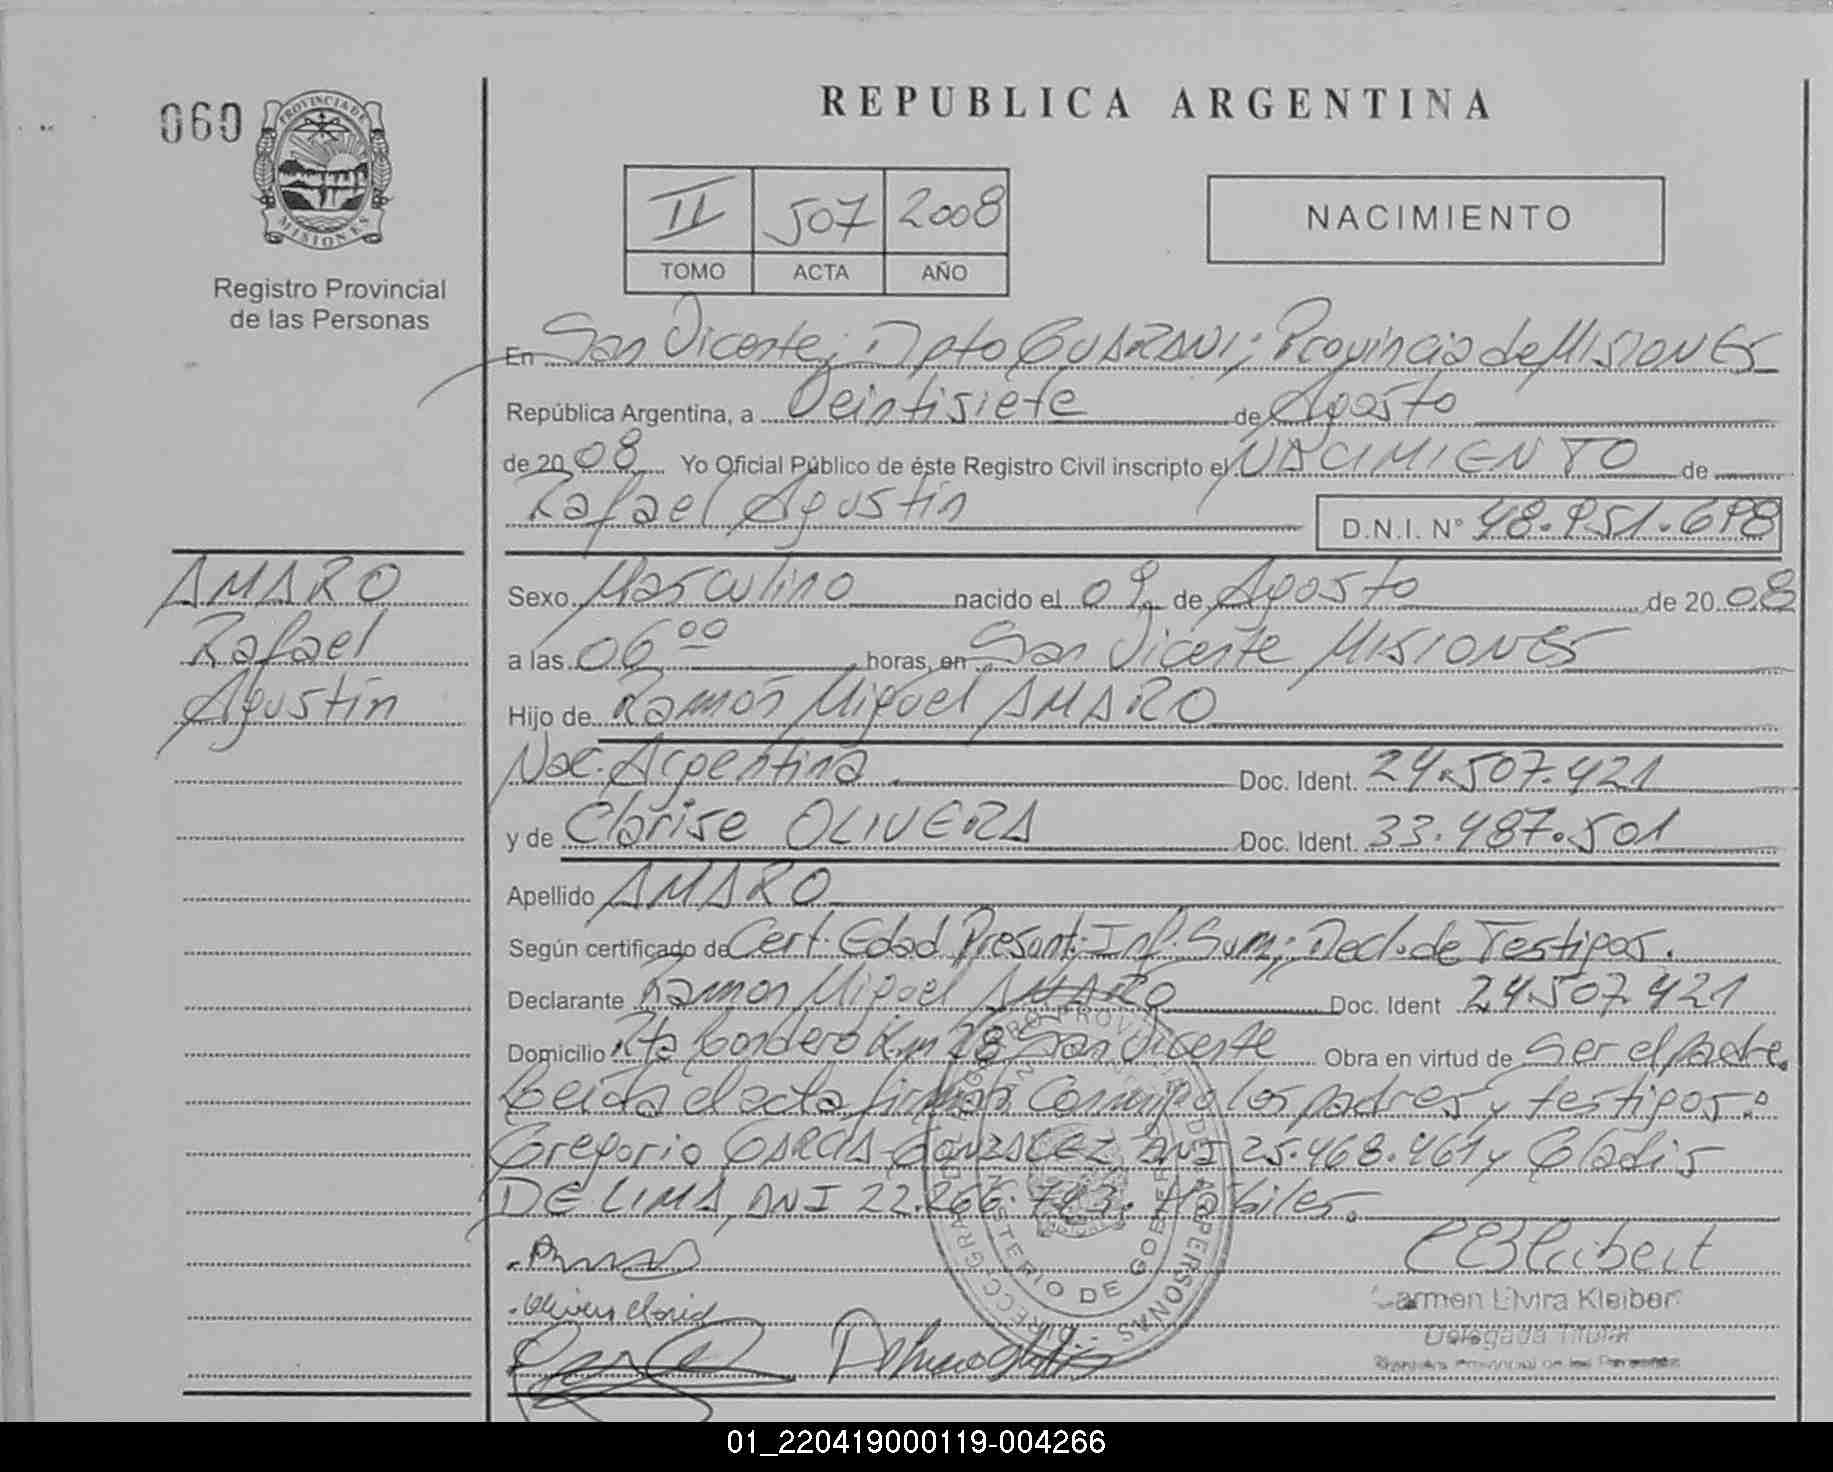 REPUBLICA ARGENTINA
060
PROVINCIA DE
MISIONES
Registro Provincial
de las Personas
II 507 2008
TOMO ACTA AÑO
NACIMIENTO
En San Vicente; Dpto GUARANI; Provincia de MISIONES
República Argentina, a Veintisiete de Agosto
de 2008 Yo Oficial Público de éste Registro Civil inscripto el NACIMIENTO de
Rafael Agustín D.N.I. Nº 48.951.698
AMARO
Rafael
Agustín
Sexo Masculino nacido el 09 de Agosto de 2008
a las 06 00 horas, en San Vicente MISIONES
Hijo de Ramón Miguel AMARO
Nac. Argentina Doc. Ident. 24.507.421
y de Clarise OLIVERA Doc. Ident. 33.487.501
Apellido AMARO
Según certificado de Cert. Edad Presunt; Inf. Sum; Decl. de Testigos.
Declarante Ramón Miguel AMARO Doc. Ident 24.507.421
Domicilio Rta Km 28 San Vicente Obra en virtud de Ser el padre.
Leída el acta firman Conmigo los padres y testigos:
Gregorio GARCIA GONZALEZ DNI 25.468.461 y Gladis
DE LIMA, DNI 22.266. Hábiles.
Carmen Elvira Kleiber
Delegada Titular
Registro Provincial de las Personas
MINISTERIO DE GOBIERNO
01_220419000119-004266